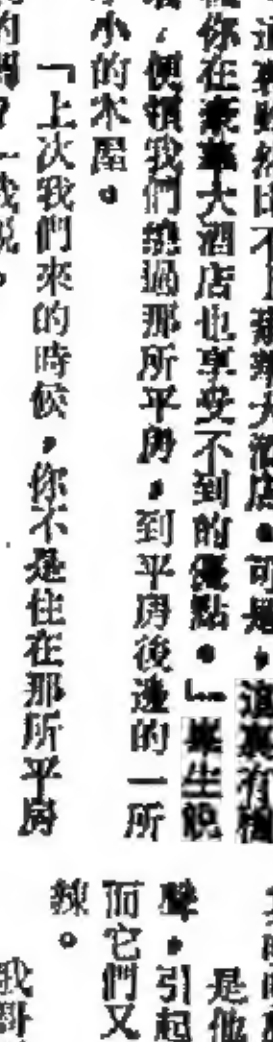 這裏雖然比不上豪華大酒店。可是，這裏有
你在豪華大酒店也享受不到的優點。」畢生說
，便領我們繞過那所平房，到平房後邊的一所
小小的木屋。
「上次我們來的時候，你不是住在那所平房
的嗎？」我說。
是他
聲，引起
而它們又
辣。
我哥